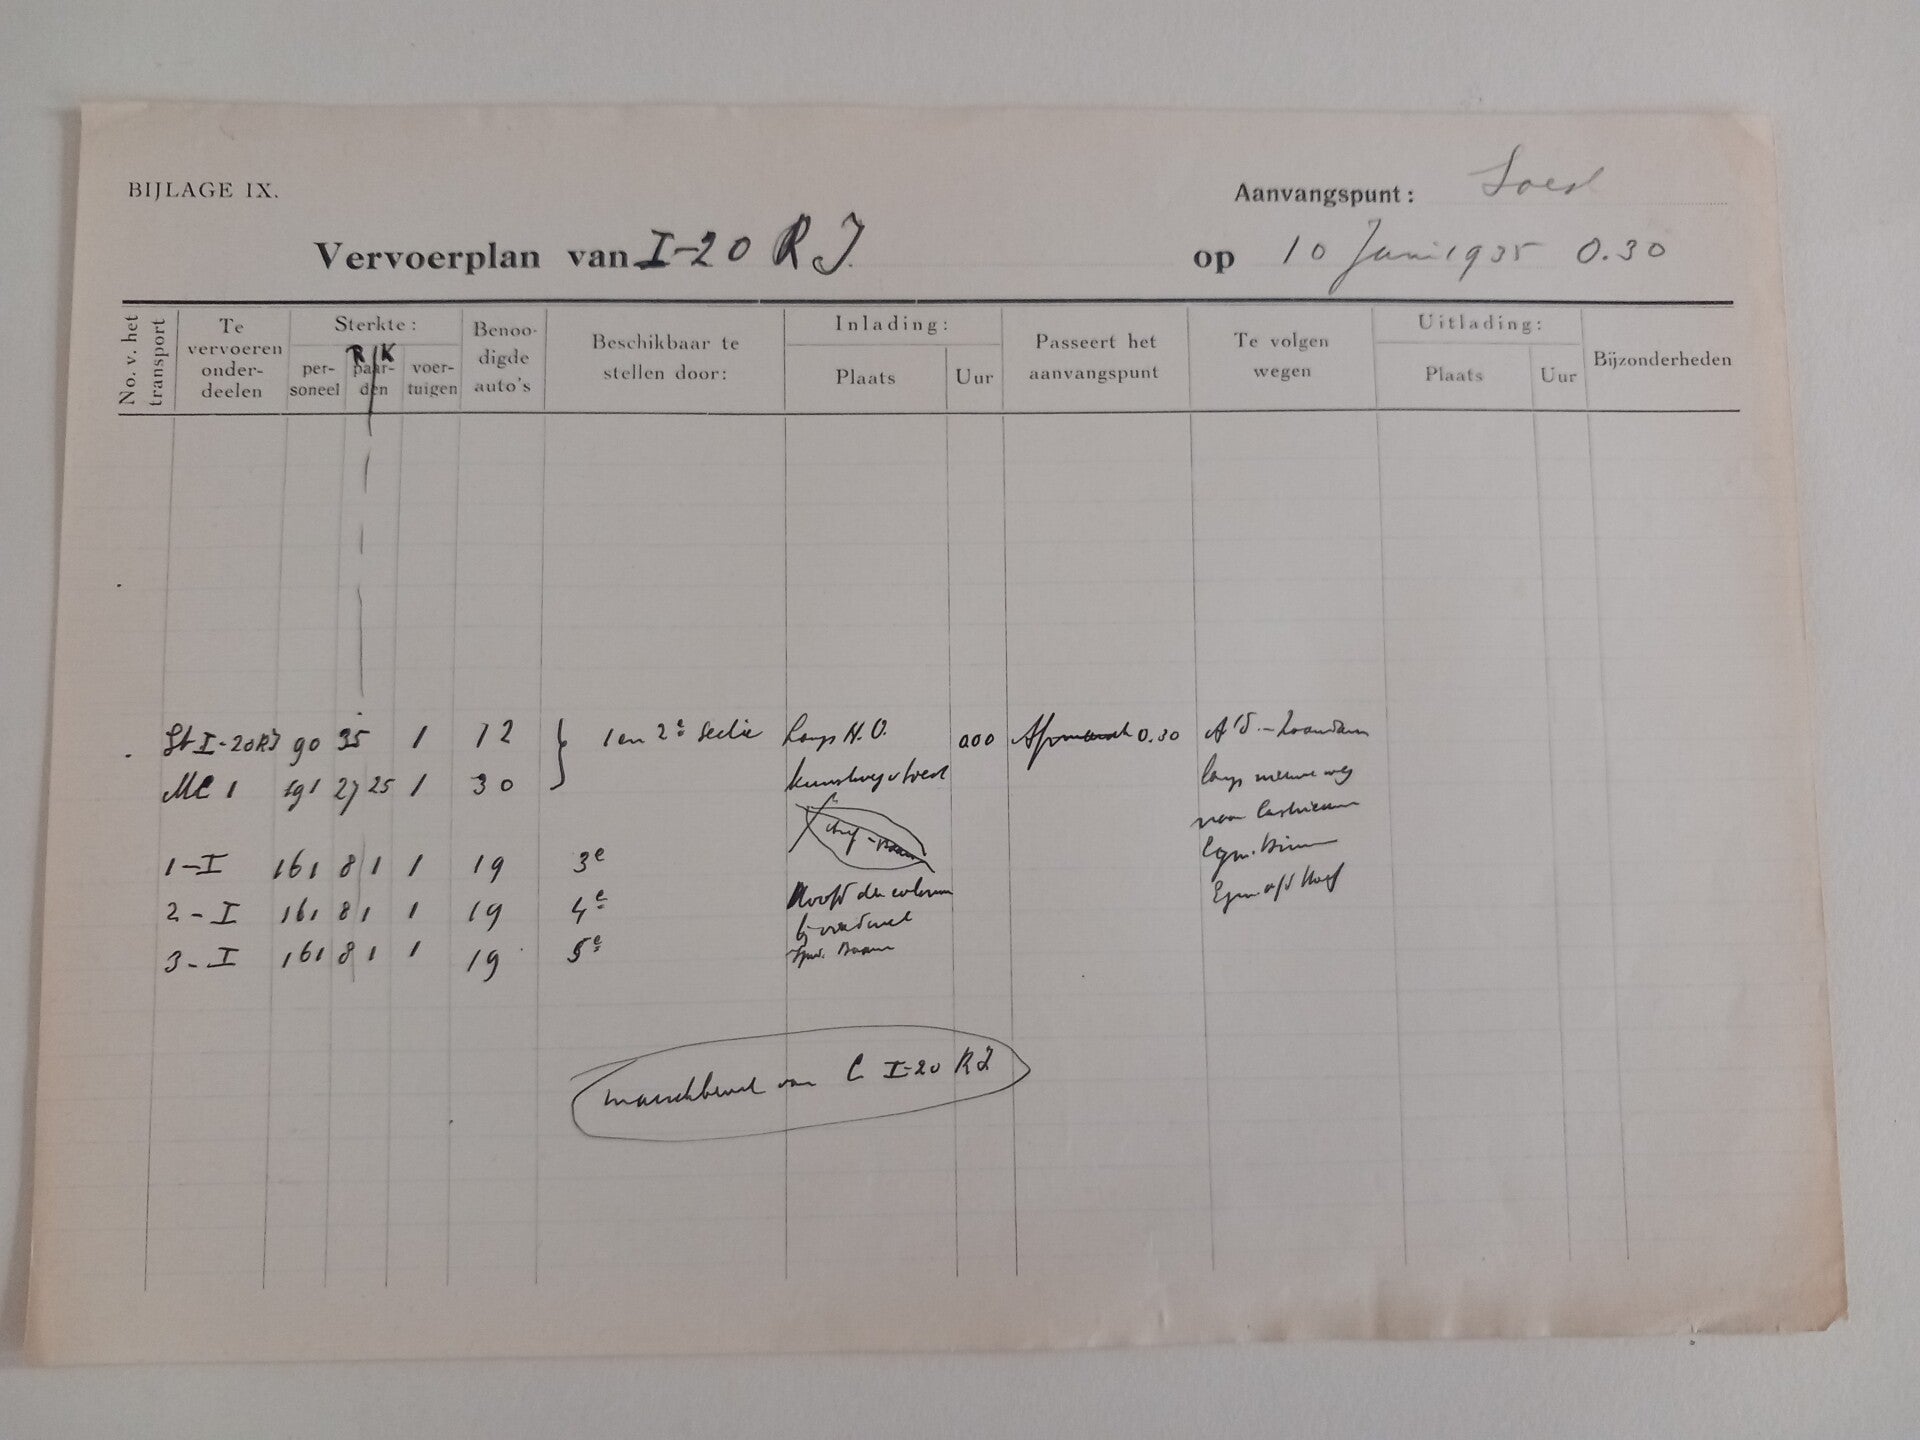 BIJLAGE IX.
Aanvangspunt: Soest
Vervoerplan van I-20 R J.
op 10 Juni 1935 0.30
No. v. het transport
Te vervoeren onder-deelen
Sterkte:
per-soneel
R/K
paar-den
voer-tuigen
Benoo-digde auto's
Beschikbaar te stellen door:
Inlading:
Plaats
Uur
Passeert het aanvangspunt
Te volgen wegen
Uitlading:
Plaats
Uur
Bijzonderheden
St I-20RJ 90 35 1 12 1 en 2e Sectie langs H.O. 000 0.30 A'd - Zaandam
MC 1 191 27 25 1 30 langs nieuwe weg
naar Castricum
1-I 161 8 1 1 19 3e
2-I 161 8 1 1 19 4e Hoofd der colonne Egm a/d Hoef
3-I 161 8 1 1 19 5e Baarn
marschbevel van C I-20 RJ